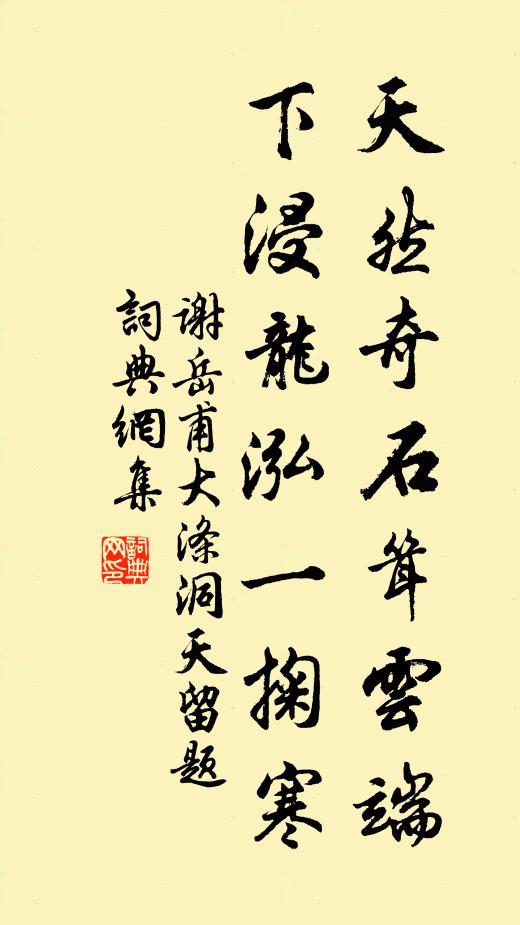 天然奇石耸雲端
下浸龍泓一掬寒
谢岳甫大滌洞天留题
詞典網集
詞典网印